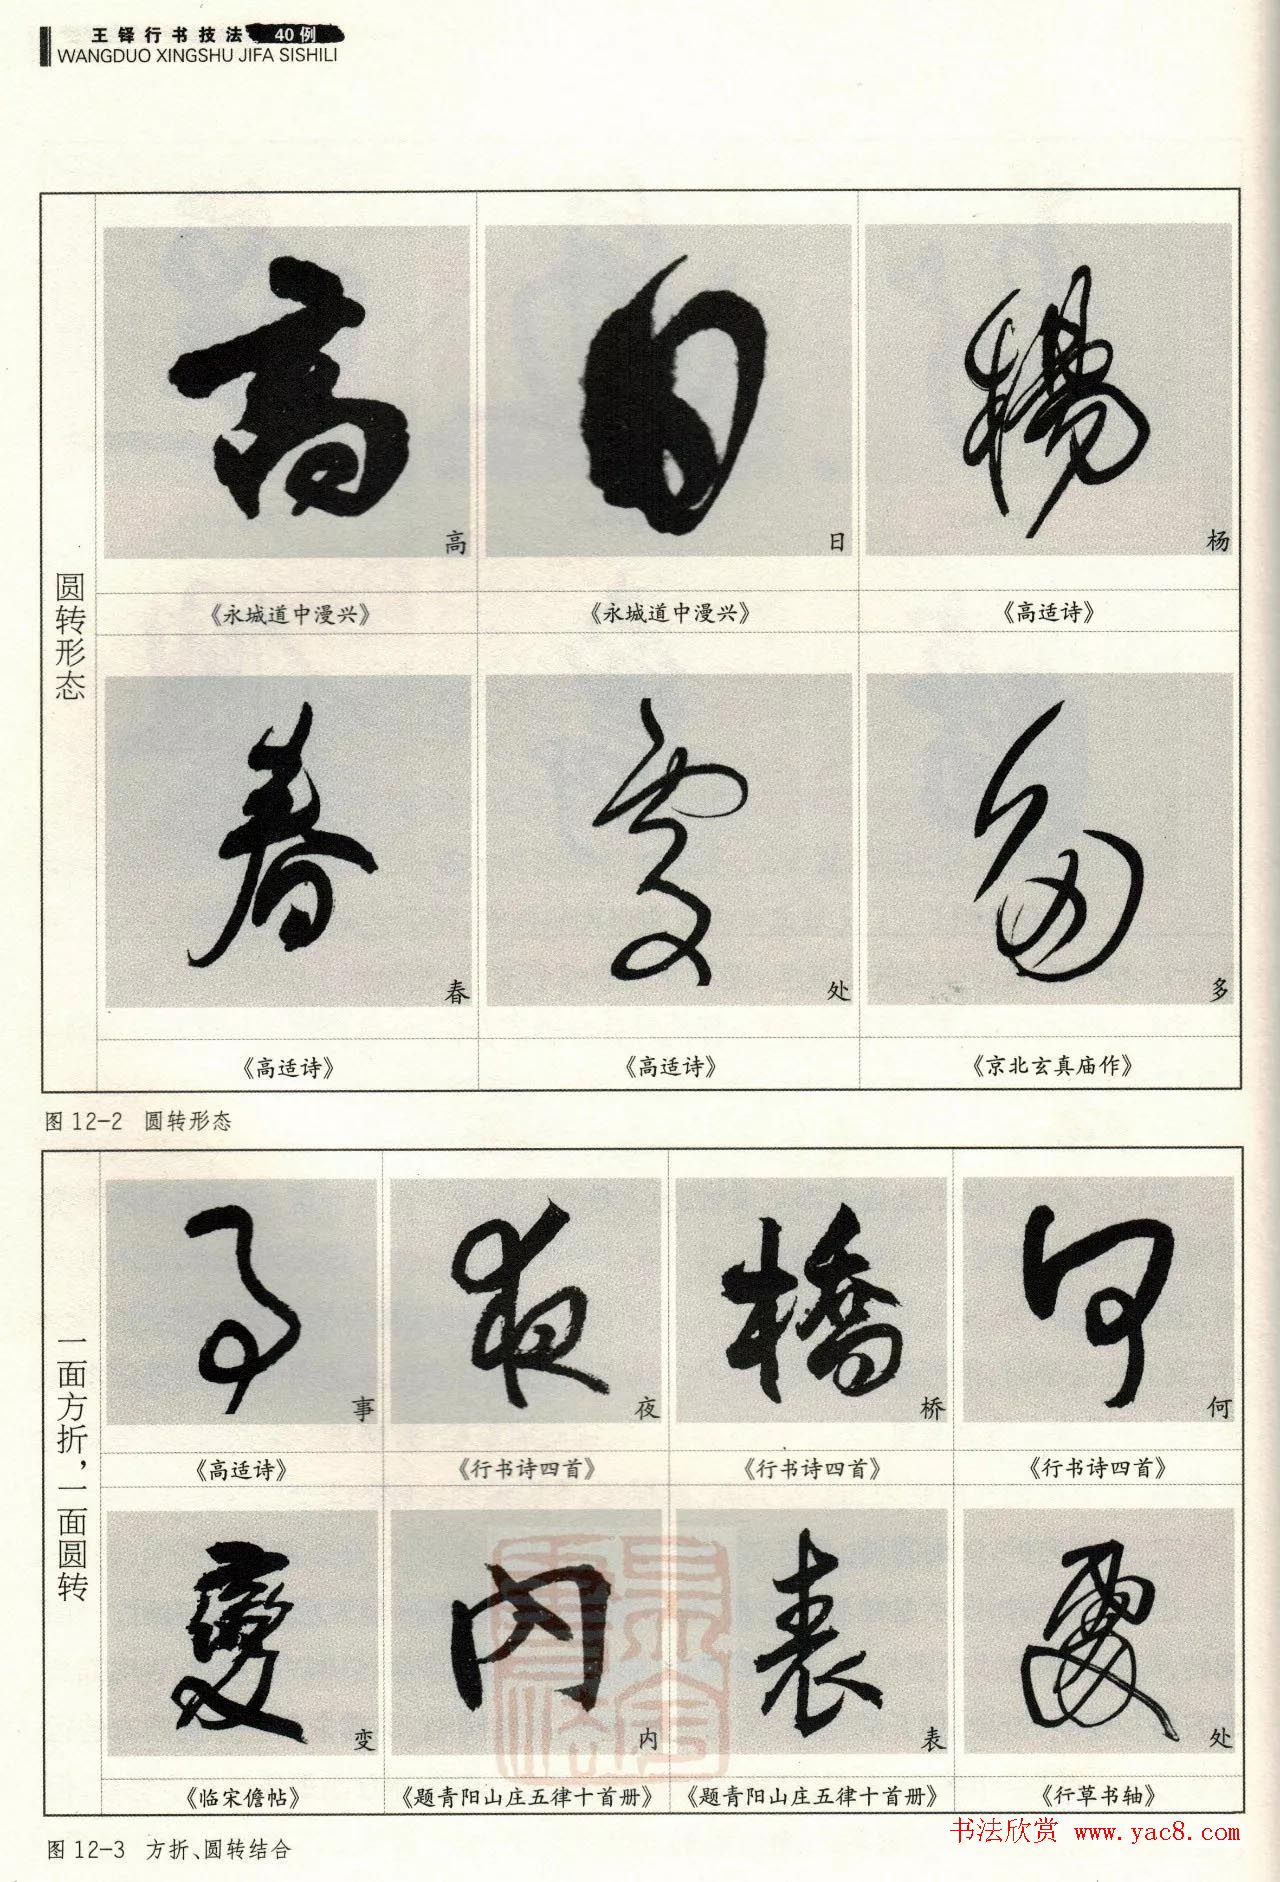 王铎行书技法 40例
WANGDUO XINGSHU JIFA SISHILI
圆转形态
高 日 杨
《永城道中漫兴》 《永城道中漫兴》 《高适诗》
春 处 多
《高适诗》 《高适诗》 《京北玄真庙作》
图 12-2 圆转形态
一面方折，一面圆转
事 夜 桥 何
《高适诗》 《行书诗四首》 《行书诗四首》 《行书诗四首》
变 内 表 处
《临宋儋帖》 《题青阳山庄五律十首册》 《题青阳山庄五律十首册》 《行草书轴》
图 12-3 方折、圆转结合
书法欣赏 www.yac8.com